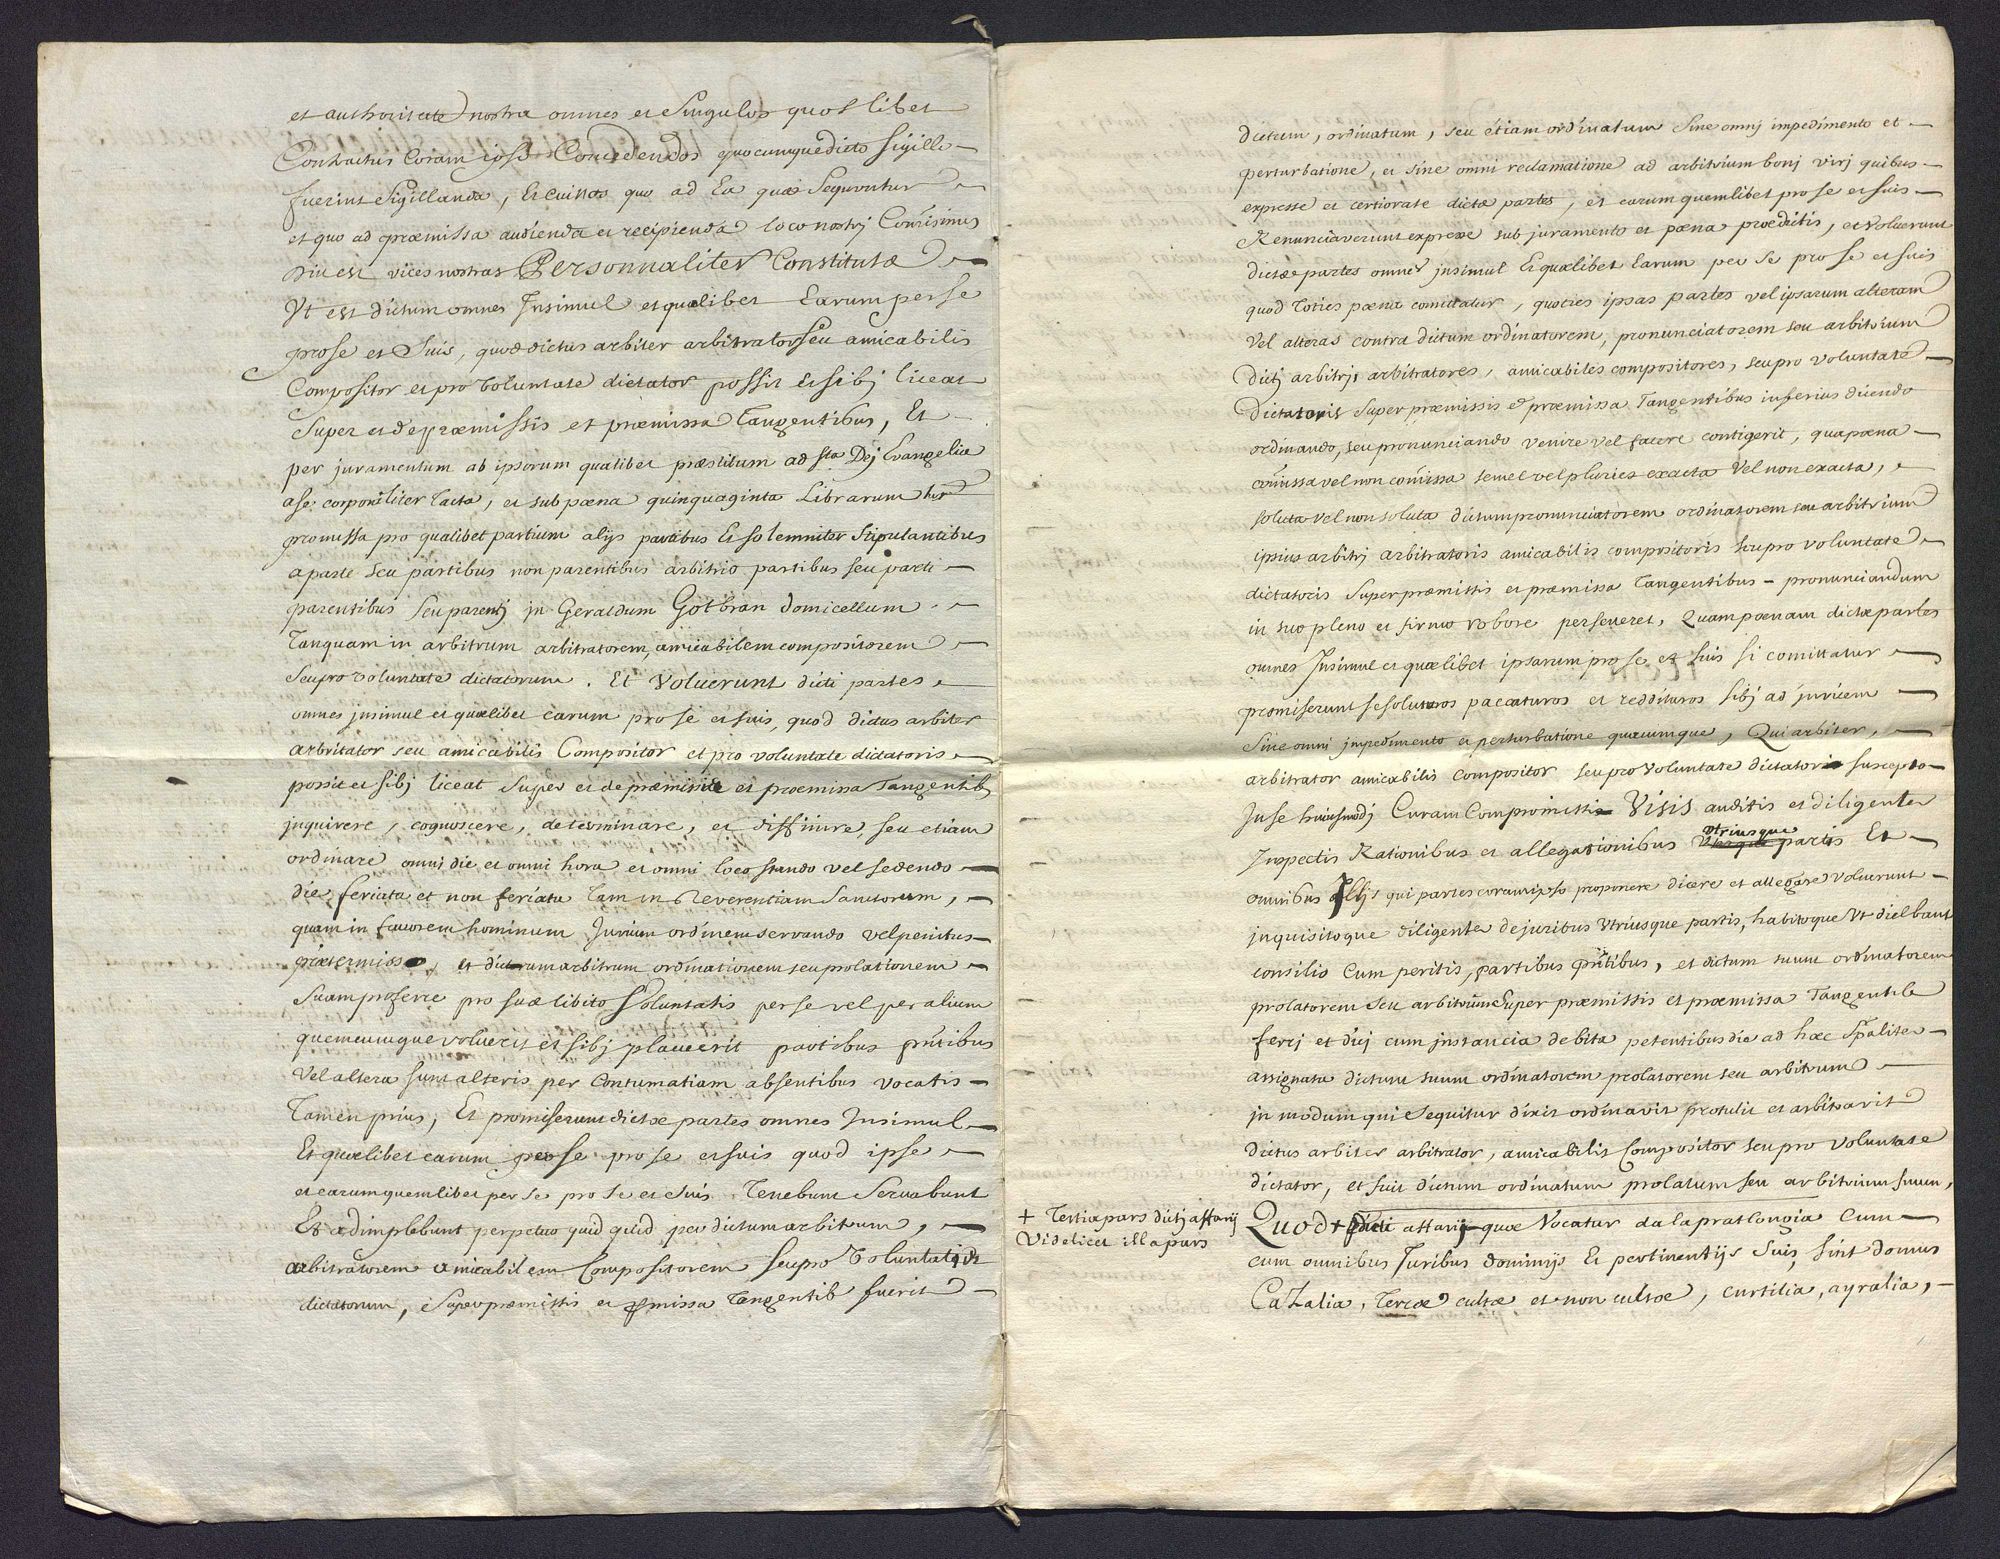 et authoritate nostra omnes et Singulos quos libet
Contractus Coram ipso Concedendos quocumque dicto sigillo
fuerint Sigillanda, Et Cuius quo ad Ea quæ Sequuntur
et quo ad præmissa audienda et recipienda loco nostrj Com̃isimus
vices nostras Personnaliter Constitutæ
Vt est dictum omnes Insimul et quælibet Earum per se
pro se et Suis, quod dictus arbiter arbitrator seu amicabilis
Compositor et pro Voluntate dictator possit et sibj liceat
Super et de præmissis et præmissa Tangentibus, Et
per juramentum ab ipsorum qualibet præstitum ad sta Dej Evangelia
a se corporaliter tacta, et sub pæna quinquaginta Librarum
promissa pro qualibet partium alijs partibus Et solemniter Stipulantibus
a parte seu partibus non parentibus arbitrio partibus seu parti
parentibus seu parentj in Geraldum Gotbran domicellum
Tanquam in arbitrum arbitratorem, amicabilem compositorem
seu pro voluntate dictatorum. Et Voluerunt dicti partes
omnes jnsimul et quælibet earum pro se et suis, quod dictus arbiter
arbritator seu amicabilis Compositor et pro voluntate dictatoris
possit et sibj liceat Super et de præmissis et præmissa Tangentib
jnquirere, cognoscere, determinare, et diffinire, seu etiam
ordinare omni die et omni hora et omni loco stando vel sedendo
die feriata et non feriata Tam in Reverentiam Sanctorum,
quam in favorem hominum Jurium ordinem servando vel penitus
prætermisso, et dictum arbitrum ordinationem seu prolationem
Suam proferre pro suæ libito Voluntatis per se vel per alium
quemcumque voluerit et sibj placuerit partibus pñtibus
Vel altera sunt alteris per Contumatiam absentibus vocatis
Tamen prius, Et promiserunt dictæ partes omnes Insimul
Et quælibet earum per se pro se et suis quod ipse
et earum quemlibet per se pro se et suis Tenebunt Servabunt
Et adimplebunt perpetuo quid quid per dictum arbitrum,
arbitratorem amicabilem Compositorem seu pro Voluntatis
dictatorum, Super præmissis et præmissa Tangentib fuerit
dictum, ordinatum, seu etiam ordinatum Sine omnj impedimento et
perturbatione, et sine omni reclamatione ad arbitrium bonj virj quibus
expresse et certiorate dictæ partes, et earum quemlibet pro se et suis
Renunciaverunt expresse sub juramento et pæna prædictis, et Voluerunt
dictæ partes omnes jnsimul Et quælibet Earum per se pro se et suis
quod Toties pæna comittatur, quoties ipsas partes vel ipsarum alteram
Vel alteras contra dictum ordinatorem, pronunciatorem seu arbitrium
Dictj arbitrj arbitratores, amicabiles compositores, seu pro voluntate
Dictatoris Super præmissis et præmissa Tangentibus inferius dicendo
ordinando, seu pronunciando venire vel facere contigerit, qua pæna
com̃issa vel non com̃issa semel vel pluries exacta Vel non exacta,
soluta vel non soluta dictum pronunciatorem ordinatorem seu arbitrium
ipsius arbitrj arbitratoris amicabilis compositoris seu pro voluntate
dictatoris Super præmissis et præmissa Tangentibus pronunciandum
in suo pleno et firmo robore perseveret, Quam pænam dictæ partes
omnes Insimul et quælibet ipsarum pro se et suis si comittatur
promiserunt se soluturos paccaturos et reddituros sibj ad jnvicem
Sine omni jmpedimento et perturbatione quacumque, Qui arbiter,
arbitrator amicabilis compositor seu pro Voluntate dictatoris suscepto
In se huiusmodj Curam Compromissi Visis auditis et diligenter
Inspectis Rationibus et allegationibus utriusque partis Et
omnibus Illis qui partes coram ipso proponere dicere et allegare voluerunt
jnquisitoque diligenter de juribus Vtriusque partis, habitoque Vt dicebant
consilio Cum peritis, partibus pñtibus, et dictum suum ordinatorem
prolatorem seu arbitrium Super præmissis et præmissa Tangentib
ferrj et dicj cum jnstancia debita petentibus die ad hæc Spãliter
assignata dictum suum ordinatorem prolatorem seu arbitrum
jn modum qui Sequitur dixit ordinavit protulit et arbitrarit
dictus arbiter arbitrator, amicabilis Compositor seu pro voluntate
dictator, et fuit dictum ordinatum prolatum seu arbitrium suum,
+ Tertia pars dictj affarij
Videlicet illa pars
Quod + dicti affarij quæ Vocatur da la prat longia Cum
cum omnibus Juribus dominijs Et pertinentijs Suis, sint domus
CaZalia, Terræ cultæ et non cultæ, curtilia, ayralia,